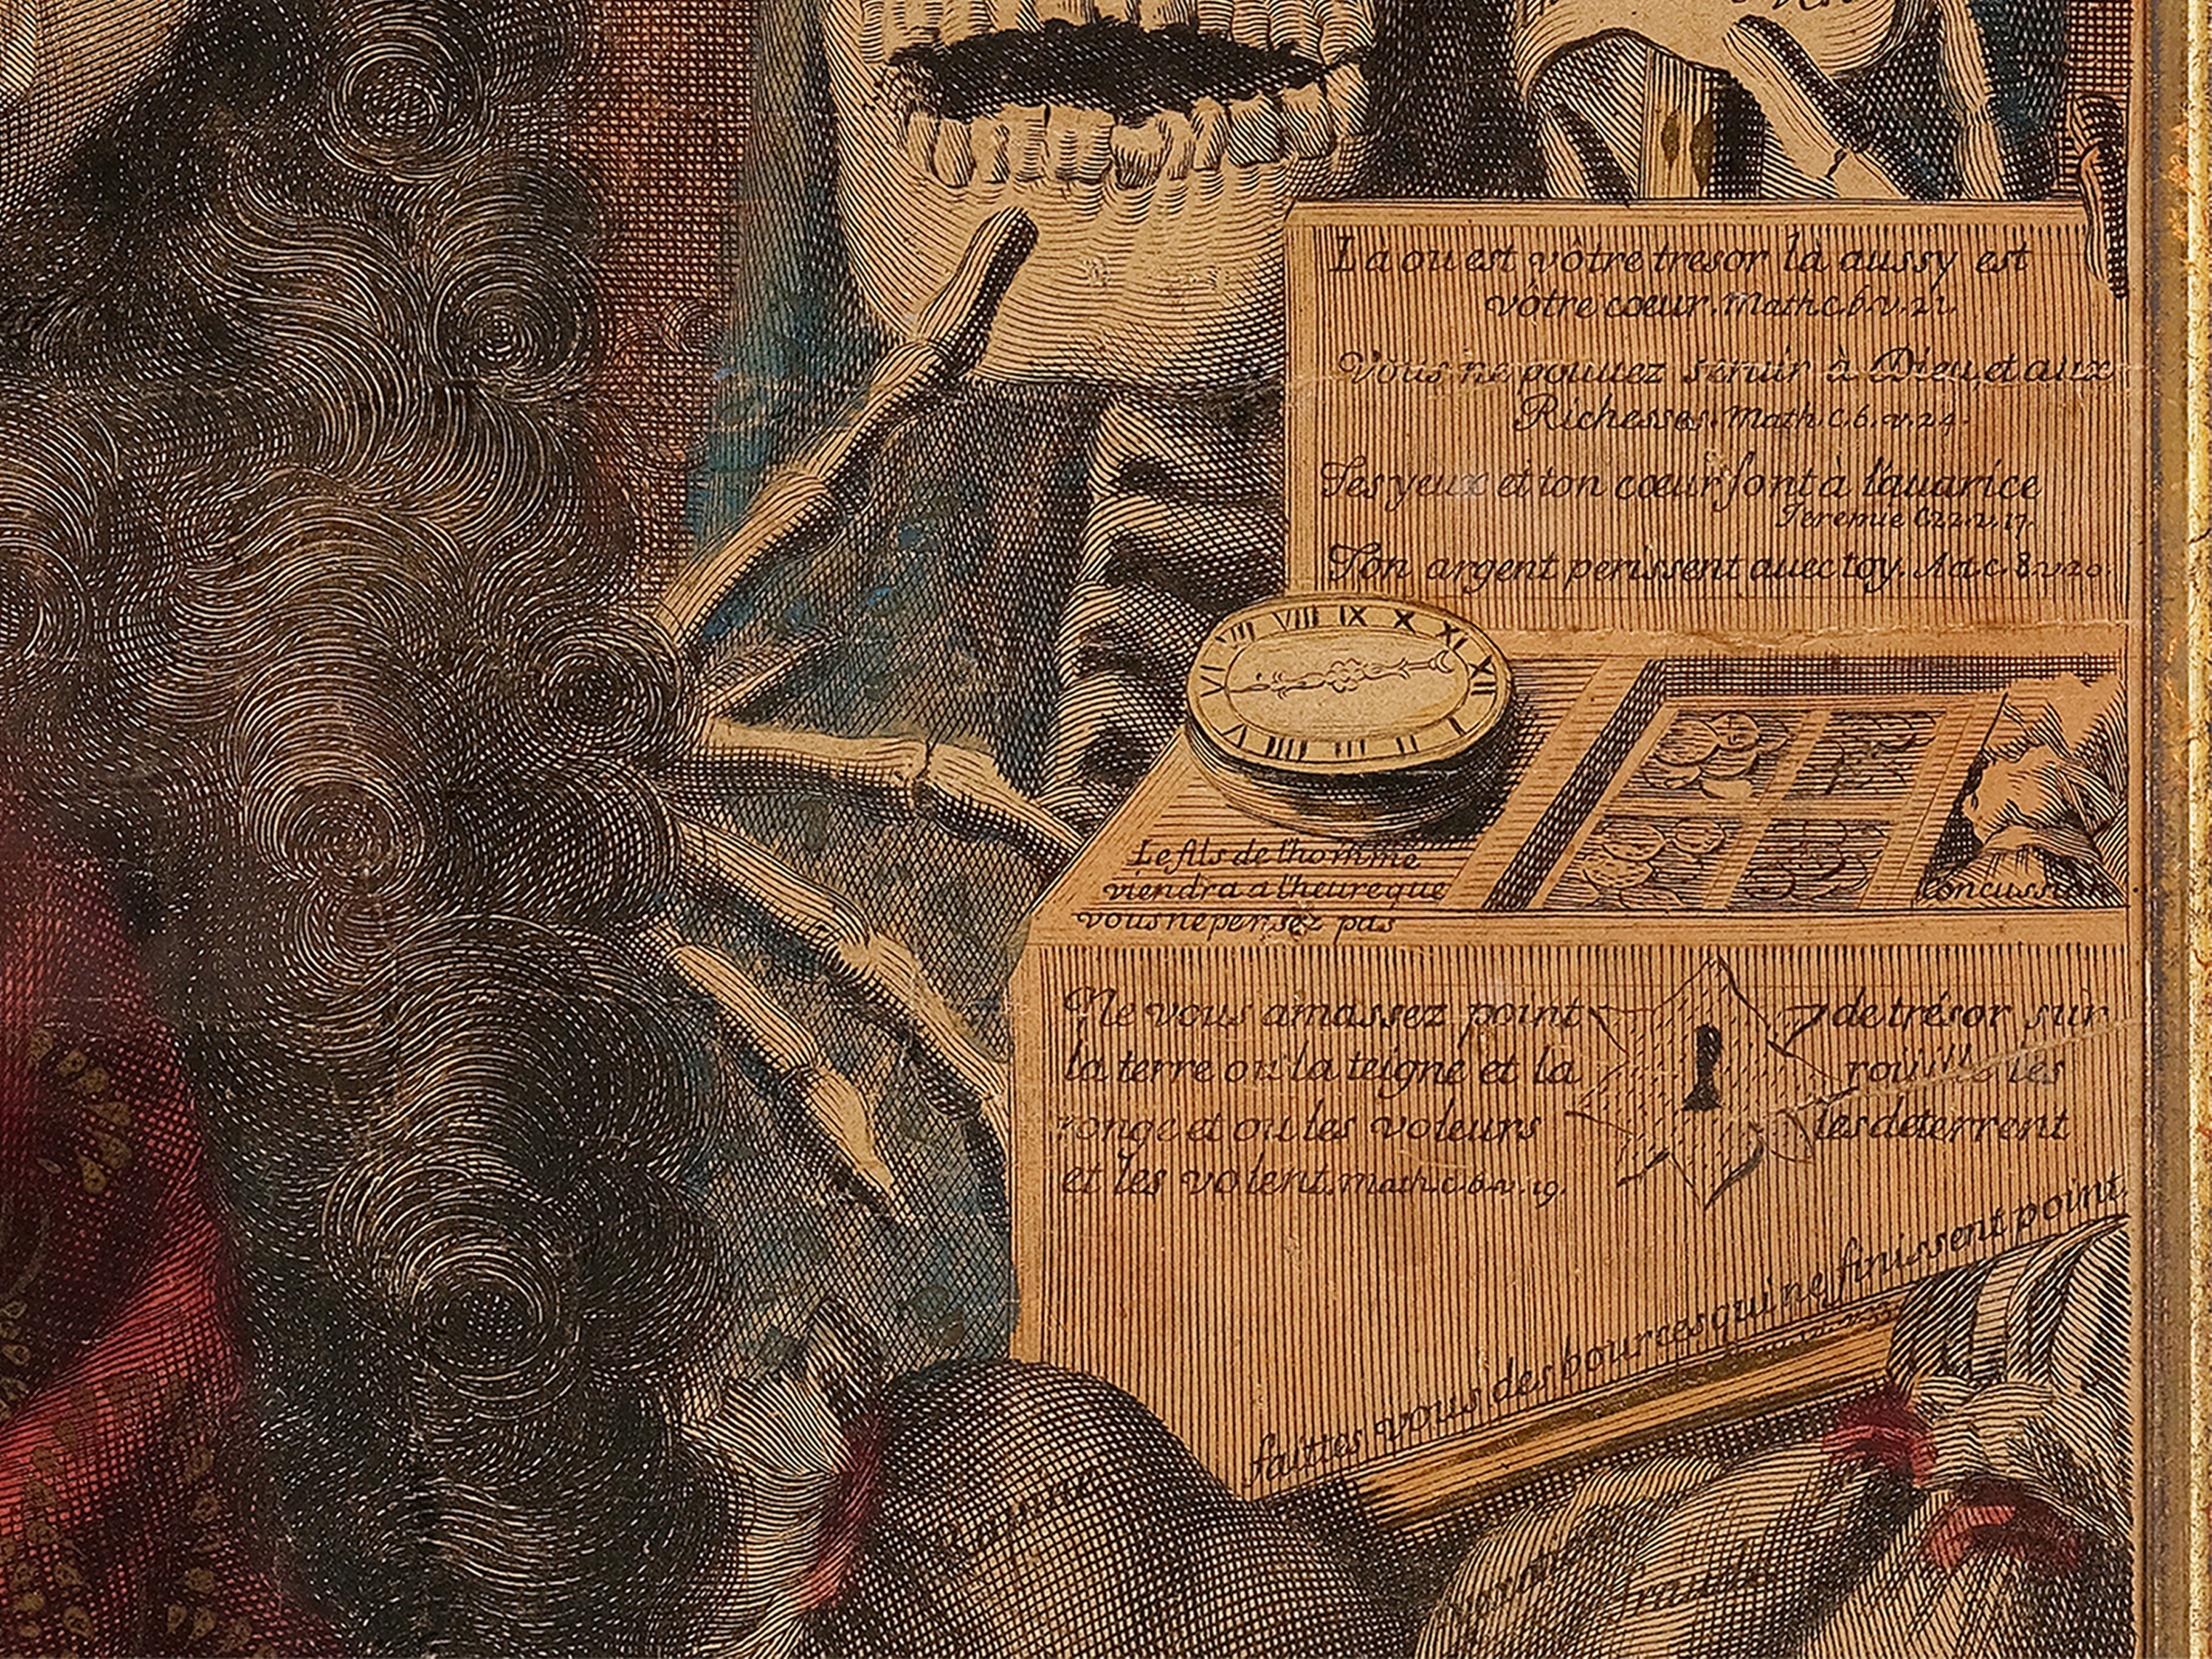 La ou est vôtre tresor là aussy est
vôtre cœur. Math. c. 6. v. 21.
Vous ne pouuez seruir à Dieu, et aux
Richesses. Math. c. 6. v. 24.
Tes yeux et ton cœur sont à l'auarice
Jeremie C. 22. v. 17.
Ton argent perissent auec toy. Act. c. 8. v. 20.
VI VII VIII IX X XI XII I II III IIII V
Le fils de l'homme
viendra a l'heure que
vous ne pensez pas
concussion
Ne vous amassez point de trésor sur
la terre ou la teigne et la rouille les
ronge et ou les voleurs les deterrent
et les volent. Math. c. 6. v. 19.
faittes vous des bources qui ne finissent point.